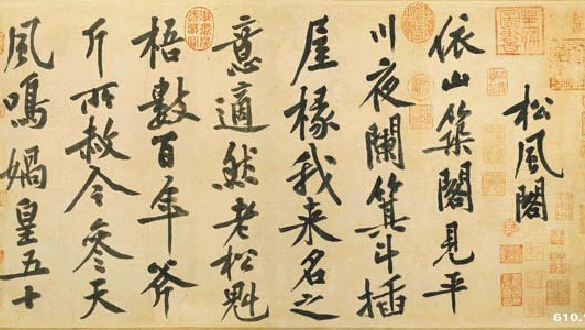 松風閣
依山築閣見平
川夜闌箕斗插
屋椽我来名之
意適然老松魁
梧數百年斧
斤所赦今參天
風鳴媧皇五十
610.